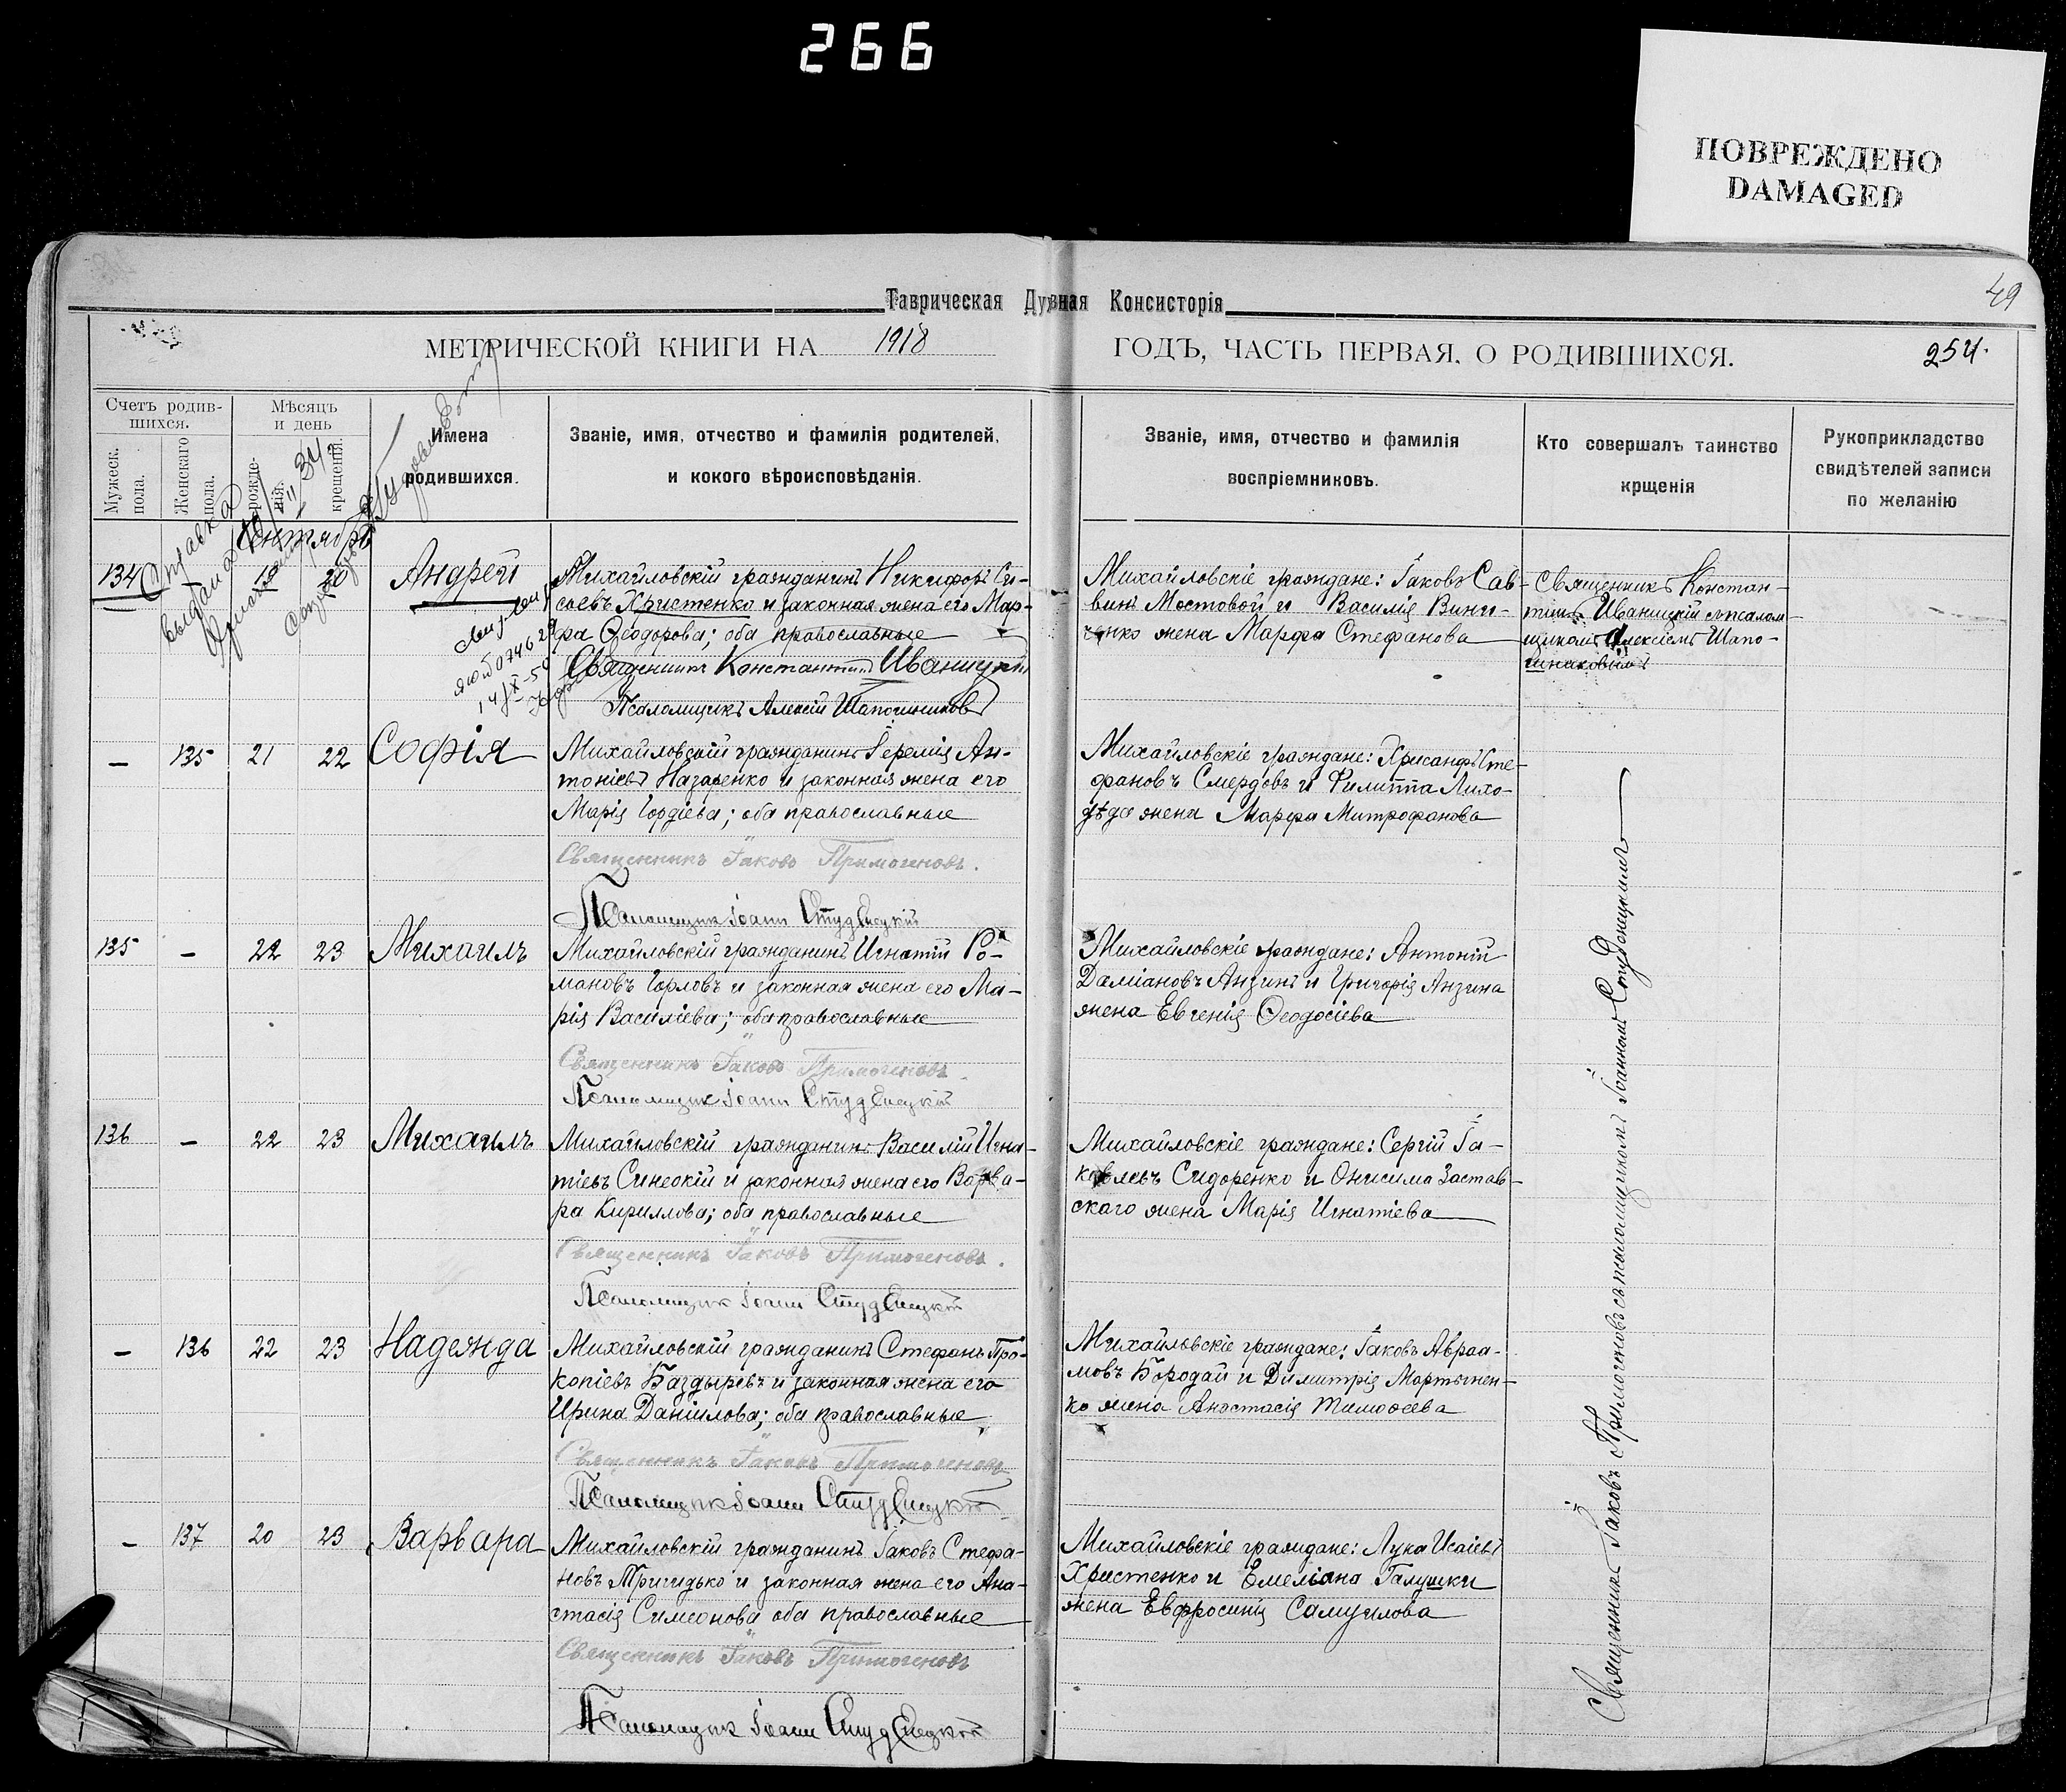 266
ПОВРЕЖДЕНО
DAMAGED
49
Таврическая Духовная Консисторія
МЕТРИЧЕСКОЙ КНИГИ НА 1918 ГОДЪ, ЧАСТЬ ПЕРВАЯ. О РОДИВШИХСЯ.
254.
Счетъ родив-
шихся.
Мужеск.
пола.
Женскаго
пола.
Мѣсяцъ
и день
рожде-
нія.
крещенія.
Имена
родившихся.
Званіе, имя, отчество и фамилія родителей,
и кокого вѣроисповѣданія.
Званіе, имя, отчество и фамилія
воспріемниковъ.
Кто совершалъ таинство
крщенія
Рукоприкладство
свидѣтелей записи
по желанію
Справка
выдана
134 — 19 20 Андрей
Михайловскій гражданинъ Никифоръ Сы-
соевъ Христенко и законная жена его Мар-
фа Ѳеодорова; оба православные
Священникъ Константинъ Иваницкій
Псаломщикъ Алексій Шапошниковъ
Михайловскіе граждане: Іаковъ Сав-
винъ Мостовой и Василія Вини-
ченко жена Марфа Стефанова
Священникъ Констан-
тинъ Иваницкій съ псалом-
щикомъ Алексіемъ Шапо-
шниковымъ
— 135 21 22 Софія
Михайловскій гражданинъ Іеремія Ан-
тоніевъ Назаренко и законная жена его
Марія Гордіева; оба православные
Священникъ Іаковъ Примогеновъ.
Псаломщик Іоанн Студенецкій
Михайловскіе граждане: Хрисанфъ Сте-
фановъ Смердовъ и Филиппа Лихо-
дѣда жена Марфа Митрофанова
135 — 22 23 Михаилъ
Михайловскій гражданинъ Игнатій Ро-
мановъ Горловъ и законная жена его Ма-
рія Василіева; оба православные
Священникъ Іаковъ Примогеновъ.
Псаломщик Іоанн Студенецкій
Михайловскіе граждане: Антоній
Даміановъ Анзинъ и Григорія Анзина
жена Евгенія Ѳеодосіева
136 — 22 23 Михаилъ
Михайловскій гражданинъ Василій Игна-
тіевъ Синеокій и законная жена его Варва-
ра Кириллова; оба православные
Священникъ Іаковъ Примогеновъ.
Псаломщик Іоанн Студенецкій
Михайловскіе граждане: Сергій Іа-
ковлевъ Сидоренко и Онисима Застав-
скаго жена Марія Игнатіева
— 136 22 23 Надежда
Михайловскій гражданинъ Стефанъ Про-
копіевъ Баздыревъ и законная жена его
Ирина Даніилова; оба православные
Священникъ Іаковъ Примогеновъ
Псаломщик Іоанн Студенецкій
Михайловскіе граждане: Іаковъ Авраа-
мовъ Бородай и Димитрія Мартынен-
ко жена Анастасія Тимоѳеева
— 137 20 23 Варвара
Михайловскій гражданинъ Іаковъ Стефа-
новъ Пригидько и законная жена его Ана-
стасія Симеонова оба православные
Священникъ Іаковъ Примогеновъ
Псаломщик Іоанн Студенецкій
Михайловскіе граждане: Лука Исаіевъ
Христенко и Емеліана Галушки
жена Евфросинія Самуилова
Священникъ Іаковъ Примогеновъ съ псаломщикомъ Іоанномъ Студенецкимъ